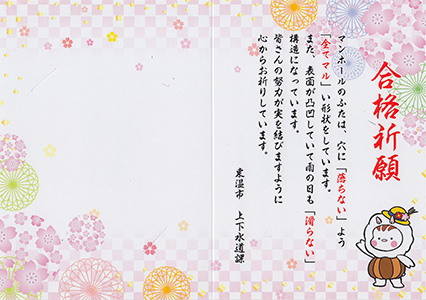 合格祈願
マンホールのふたは、穴に「落ちない」よう
「全てマル」い形状をしています。
また、表面が凸凹していて雨の日も「滑らない」
構造になっています。
皆さんの努力が実を結びますように
心からお祈りしています。
東温市 上下水道課